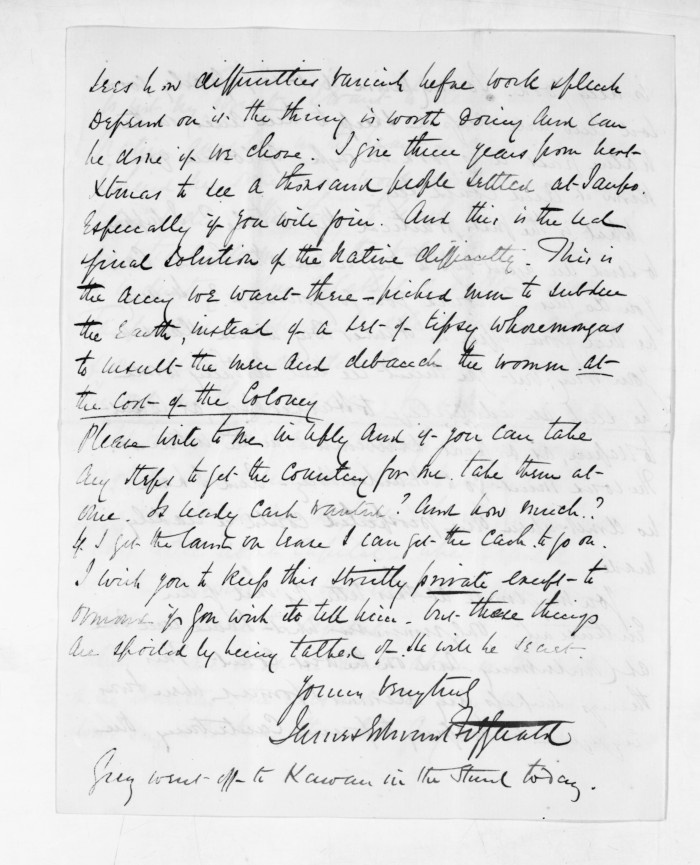 sees how difficulties vanish before work & pluck
Depend on it the thing is worth doing and can
be done if we chose. I give three years from next
Xtmas to see a thousand people settled at Taupo.
Especially if you will join. And this is the real
final solution of the Native difficulty. This is
the army we want there – picked men to subdue
the Earth, instead of a set of tipsy whoremongers
to insult the men and debauch the women at
the cost of the Colony
Please write to me in reply and if you can take
any steps to get the country for me take them at
once. Is ready cash wanted? And how much?
If I get the land on lease I can get the cash to go on.
I wish you to keep this strictly private except to
Ormond if you wish to tell him. but these things
are spoiled by being talked of. He will be secret.
Yours very truly
James Edward FitzGerald
Grey went off to Kawau in the Sturt today.